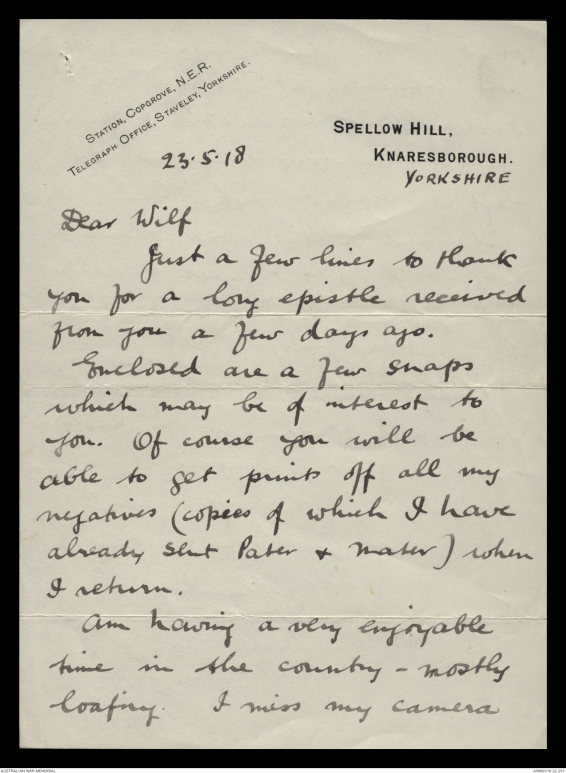 STATION, COPGROVE, N.E.R.
TELEGRAPH OFFICE, STAVELEY, YORKSHIRE.
SPELLOW HILL,
KNARESBOROUGH.
YORKSHIRE
23.5.18
Dear Wilf
Just a few lines to thank
you for a long epistle received
from you a few days ago.
Enclosed are a few snaps
which may be of interest to
you. Of course you will be
able to get prints off all my
negatives (copies of which I have
already sent Pater & Mater) when
I return.
Am having a very enjoyable
time in the country - mostly
loafing. I miss my camera
AUSTRALIAN WAR MEMORIAL